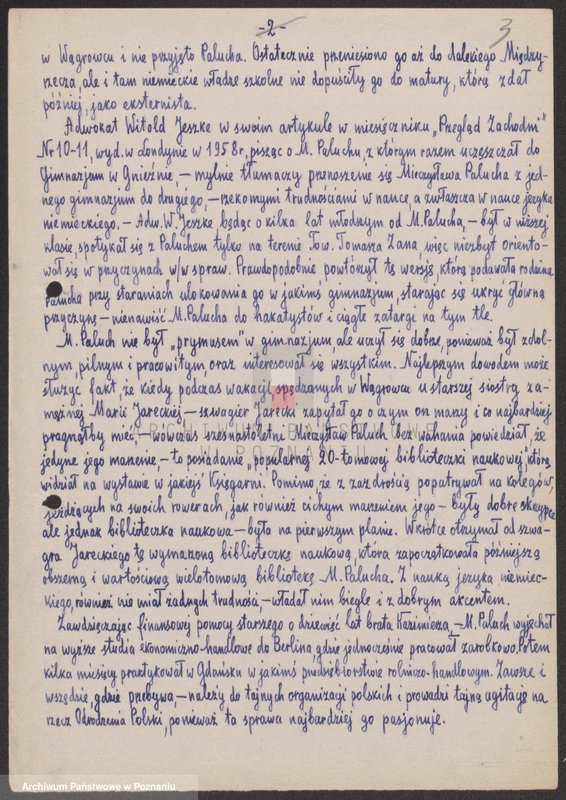 -2-
3
w Wągrowcu i nie przyjęto Palucha. Ostatecznie przeniesiono go aż do dalekiego Między-
rzecza, ale i tam niemieckie władze szkolne nie dopuściły go do matury, którą zdał
później, jako eksternista.
Adwokat Witold Jeszke w swoim artykule w miesięczniku „Przegląd Zachodni"
Nr 10-11, wyd. w Londynie w 1958 r, pisząc o M. Paluchu, z którym razem uczęszczał do
Gimnazjum w Gnieźnie, – mylnie tłumaczy przenoszenie się Mieczysława Palucha z jed-
nego gimnazjum do drugiego, – rzekomymi trudnościami w nauce, a zwłaszcza w nauce języka
niemieckiego. – Adw. W. Jeszke będąc o kilka lat młodszym od M. Palucha, – był w niższej
klasie, spotykał się z Paluchem tylko na terenie Tow. Tomasza Zana, więc niezbyt oriento-
wał się w przyczynach w/w spraw. Prawdopodobnie powtórzył tę wersję, którą podawała rodzina
Palucha przy staraniach ulokowania go w jakimś gimnazjum, starając się ukryć główną
przyczynę – nienawiść M. Palucha do hakatystów i ciągłe zatargi na tym tle.
M. Paluch nie był „prymusem" w gimnazjum, ale uczył się dobrze, ponieważ był zdol-
nym, pilnym i pracowitym, oraz interesował się wszystkim. Najlepszym dowodem może
służyć fakt, że kiedy, podczas wakacji, spędzanych w Wągrowcu u starszej siostry, za-
mężnej Marii Jareckiej – szwagier Jarecki zapytał go o czym on marzy i co najbardziej
pragnąłby mieć – wówczas szesnastoletni Mieczysław Paluch bez wahania powiedział, że
jedyne jego marzenie, – to posiadanie „popularnej 20-tomowej biblioteczki naukowej", którą
widział na wystawie w jakiejś Księgarni. Pomimo że z zazdrością popatrywał na kolegów,
jeżdżących na swoich rowerach, jak również cichym marzeniem jego – były dobre skrzypce
ale jednak biblioteczka naukowa – była na pierwszym planie. Wkrótce otrzymał od szwa-
gra Jareckiego tę wymarzoną biblioteczkę naukową, która zapoczątkowała późniejszą
obszerną i wartościową wielotomową bibliotekę M. Palucha. Z nauką języka niemiec-
kiego, również nie miał żadnych trudności, – władał nim biegle i z dobrym akcentem.
Zawdzięczając finansowej pomocy starszego o dziewięć lat brata Kazimierza, – M. Paluch wyjechał
na wyższe studia ekonomiczno-handlowe do Berlina gdzie jednocześnie pracował zarobkowo. Potem
kilka miesięcy praktykował w Gdańsku w jakimś przedsiębiorstwie rolniczo-handlowym. Zawsze i
wszędzie, gdzie przebywa, – należy do tajnych organizacji polskich i prowadzi tajną agitację na
rzecz Odrodzenia Polski, ponieważ ta sprawa najbardziej go pasjonuje.
ARCHIWUM PAŃSTWOWE
W POZNANIU
Archiwum Państwowe w Poznaniu